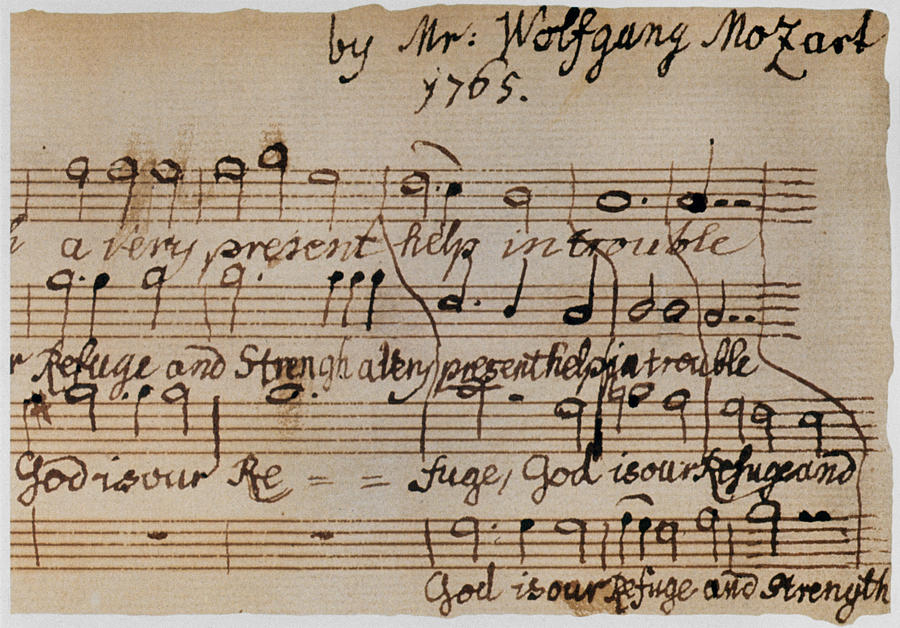 by Mr: Wolfgang Mozart
1765.
a very present help in trouble
Refuge and Strengh a very present help in trouble
God is our Re = = fuge, God is our Refuge and
God is our Refuge and Strength